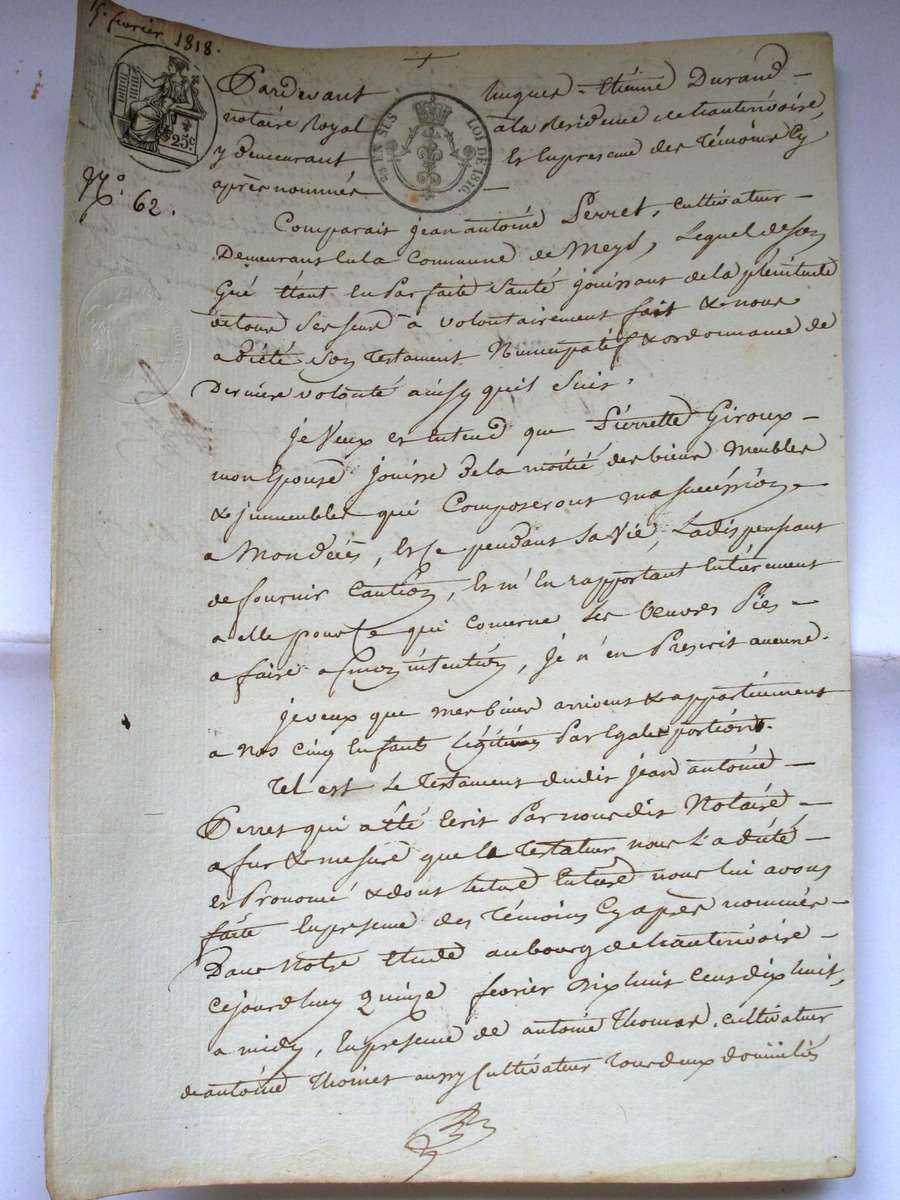 15. fevrier 1818.
25c
25 EN SUS
LOI DE 1816.
N.o 62.
Pardevant hugues-étiénne Durand -
notaire Royal à la Résidence de hauterivoire,
y demeurant Et En presence des Témoins Cy
après nommés -
Comparait jean antoine Perret, Cultivateur -
Demeurant En la Commune de Meys, Lequel de son
Gré Etant En Parfaite Santé jouissant de la plénitude
de tous ses sens à volontairement fait & nous
a dicté son Testament Nuncupatif & ordonnance de
Dernière volonté ainsy qu'il suit.
Je Veux et entend que Pierrette Giroux -
mon Epouse jouisse de la moitié des biens Meubles
& immeubles qui Composeront ma succéssion -
a Mon décès, Et Ce pendant Sa Vie, La dispensant
de fournir Caution, Et m'En rapportant Entièrement
a elle pour Ce qui Concerne Les Oeuvres Pies -
a faire a mon intention, Je n'en Prescrit aucune.
Je veux que mes biens arrivent & appartiennent
a Nos Cinq Enfants Légitimes Par Egales portions.
Tel est Le Testament dudit jean antoine -
Perret qui a été Ecrit Par nous dit Notaire -
a fur & mesure que le Testateur nous L'a dicté -
et Prononcé & dont lecture Entière nous lui avons
faite En presence des Témoins Cy après nommés -
Dans Notre Etude au bourg de hauterivoire -
Cejourd'huy Quinze fevrier dix huit Cent dix huit,
a midy, En presence de antoine Thomas, Cultivateur
de antoine Thomet aussy Cultivateur tous deux domiciliés